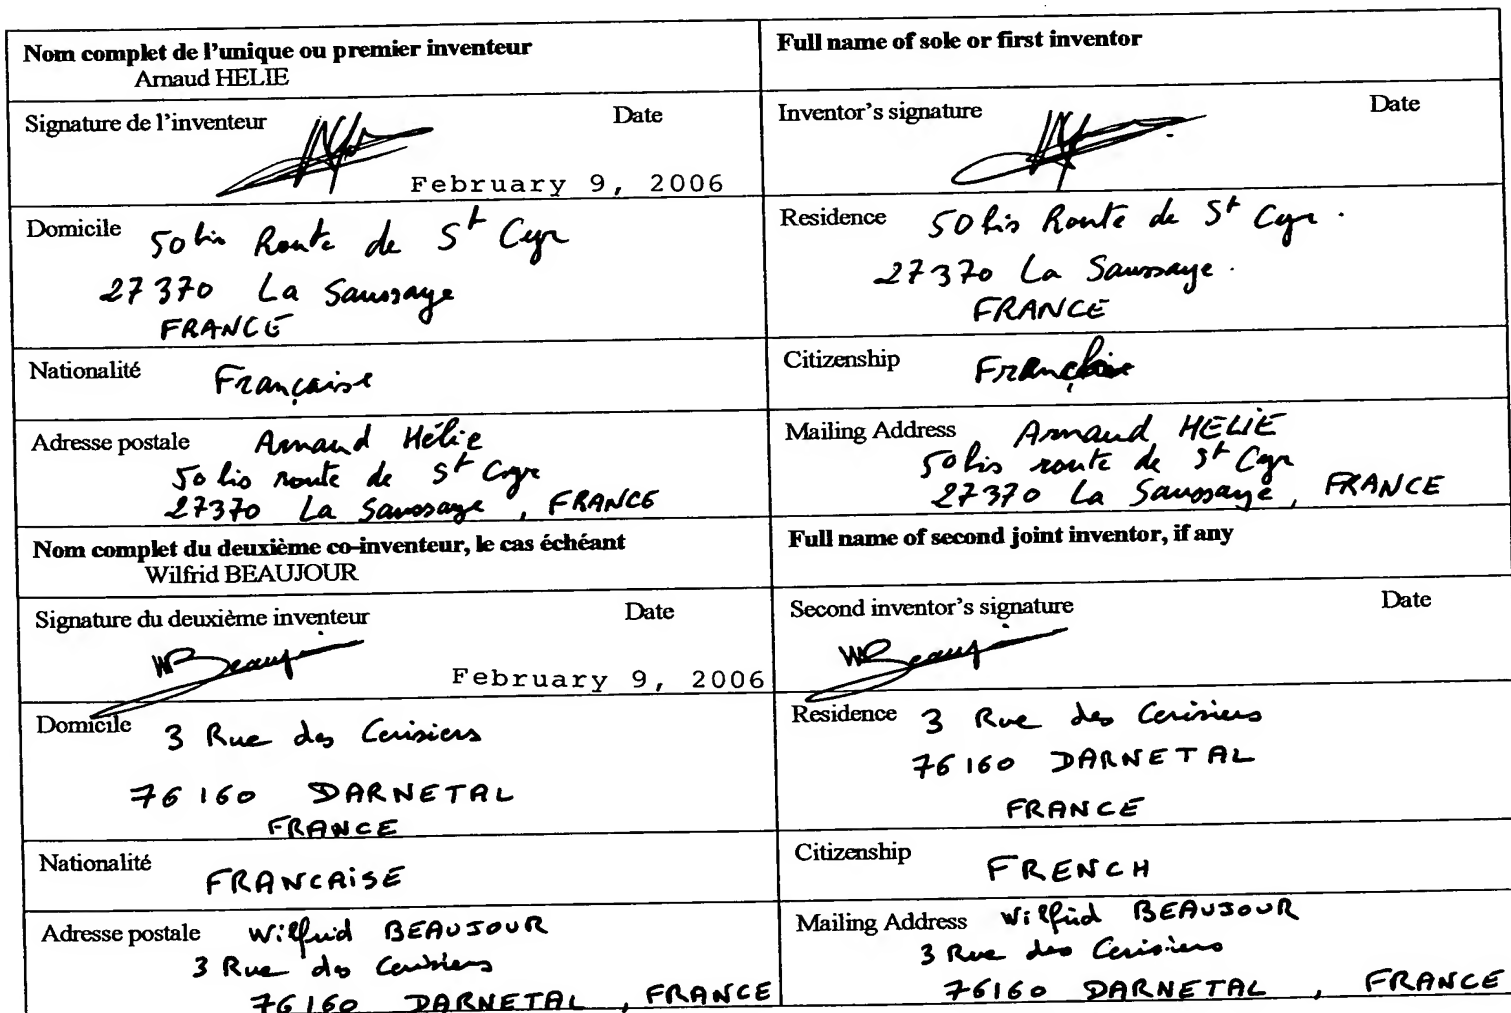 Nom complet de l'unique ou premier inventeur
Arnaud HELIE
Full name of sole or first inventor
Signature de l'inventeur Date
February 9, 2006
Inventor's signature Date
Domicile 50 bis Route de St Cyr
27370 La Saussaye
FRANCE
Residence 50 bis Route de St Cyr.
27370 La Saussaye.
FRANCE
Nationalité Française
Citizenship Française
Adresse postale Arnaud Hélie
50 bis route de St Cyr
27370 La Saussaye, FRANCE
Mailing Address Arnaud HELIE
50 bis route de St Cyr
27370 La Saussaye, FRANCE
Nom complet du deuxième co-inventeur, le cas échéant
Wilfrid BEAUJOUR
Full name of second joint inventor, if any
Signature du deuxième inventeur Date
February 9, 2006
Second inventor's signature Date
Domicile 3 Rue des Cerisiers
76160 DARNETAL
FRANCE
Residence 3 Rue des Cerisiers
76160 DARNETAL
FRANCE
Nationalité FRANCAISE
Citizenship FRENCH
Adresse postale Wilfrid BEAUJOUR
3 Rue des Cerisiers
76160 DARNETAL, FRANCE
Mailing Address Wilfrid BEAUJOUR
3 Rue des Cerisiers
76160 DARNETAL, FRANCE